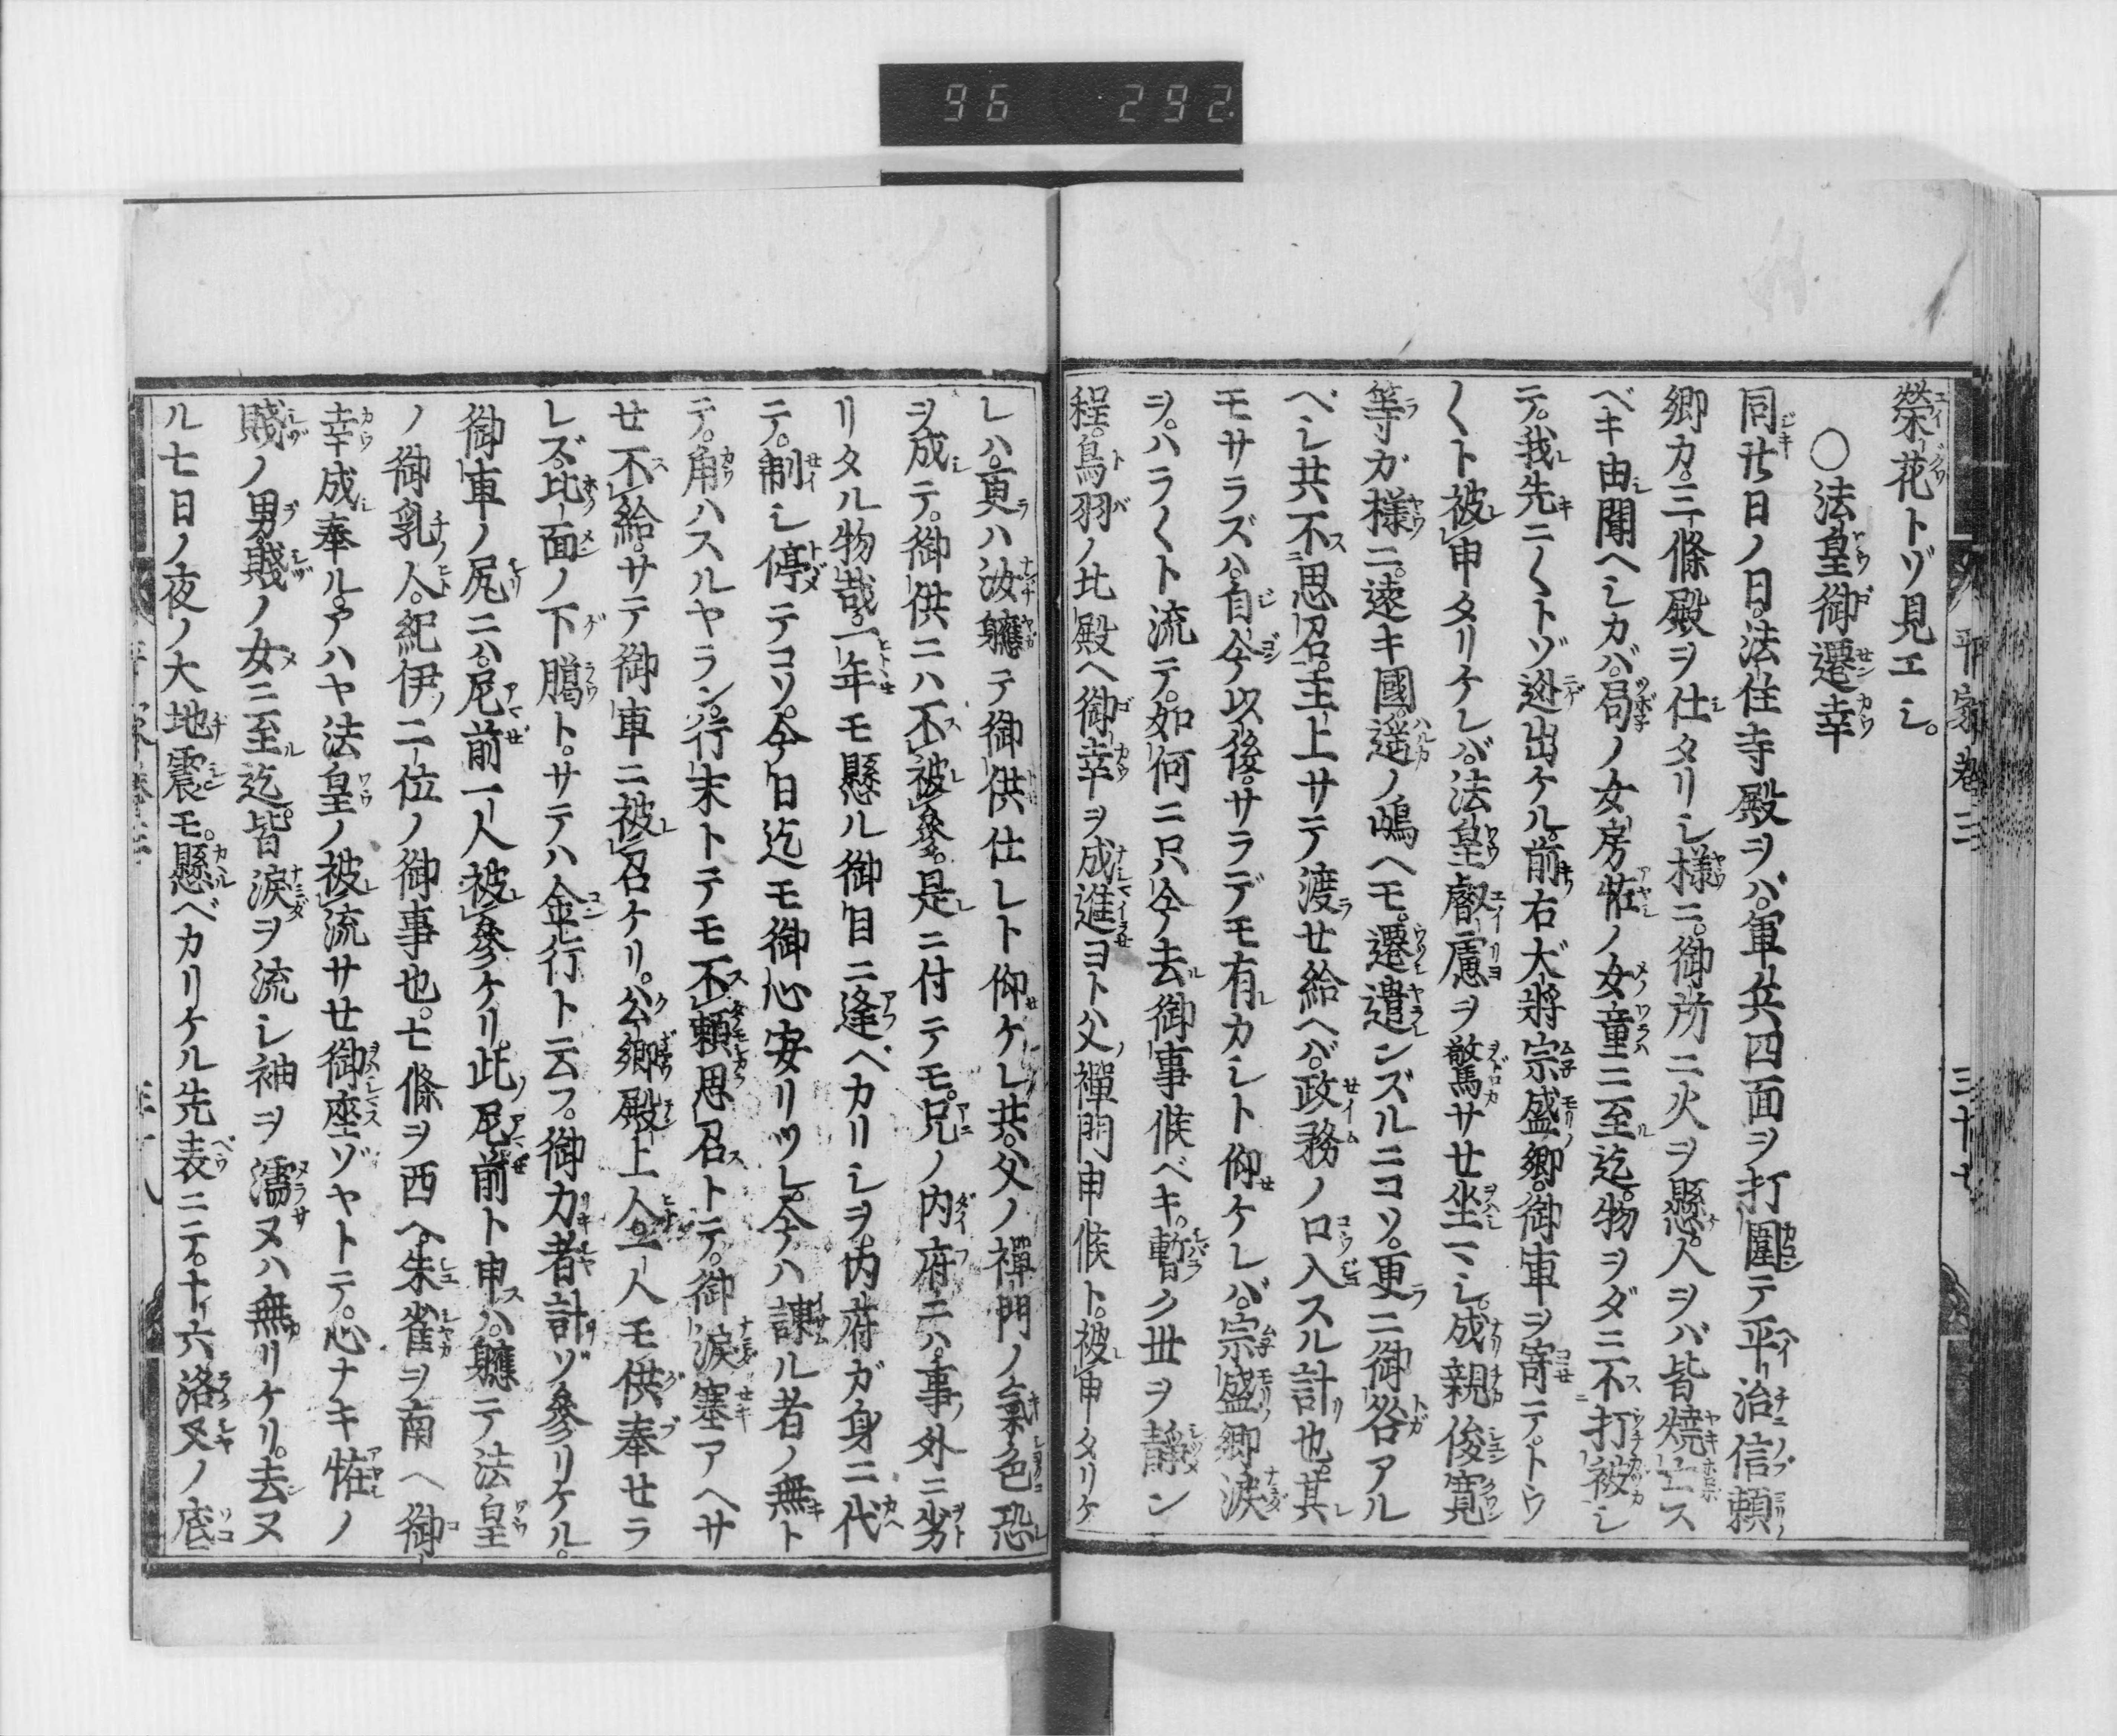 96 292
平家巻三 三十七
榮花トゾ見エシ。
〇法皇御遷幸
同廿日ノ日。法住寺殿ヲバ。軍兵四面ヲ打圍テ平治信頼
卿カ。三條殿ヲ仕タリシ様ニ。御所ニ火ヲ懸。人ヲバ皆燒亡ス
ベキ由聞ヘシカバ。局ノ女房恠ノ女童ニ至迄。物ヲダニ不打被シ
テ。我先ニ〱トゾ迯出ケル。前右大將宗盛卿。御車ヲ寄テ。トウ
〱ト被申タリケレバ。法皇叡慮ヲ驚サせ坐マシ。成親俊寛
等ガ様ニ。遠キ國。遥ノ嶋ヘモ。遷遣ンズルニコソ。更ニ御咎アル
ベシ共不思召。主上サテ渡せ給ヘバ。政務ノ口入スル計也。其
モサラズハ。自今以後。サラデモ有カシト仰ケレバ。宗盛卿涙
ヲ。ハラ〱ト流テ。如何ニ只今去御事候ベキ。暫ク世ヲ靜ン
程。鳥羽ノ北殿ヘ御幸ヲ成進ヨト父ノ禪門申候ト。被申タリケ
レハ。更ハ汝軈テ御供仕レト仰ケレ共。父ノ禪門ノ氣色恐
ヲ成テ。御供ニハ不被參。是ニ付テモ。兄ノ内府ニハ。事外ニ劣
リタル物哉。一年モ懸ル御目ニ逢ベカリシヲ。内府ガ身ニ代
テ。制シ停テコソ。今日迄モ御心安リツレ。今ハ諫ル者ノ無ト
テ。角ハスルヤラン。行末トテモ不頼思召トテ。御涙塞アヘサ
せ不給。サテ御車ニ被召ケリ。公卿殿上人。一人モ供奉せラ
レズ。北面ノ下﨟ト。サテハ金行ト云フ。御力者計ゾ參リケル。
御車ノ尻ニハ。尼前一人被參ケリ。此尼前ト申ハ。軈テ法皇
ノ御乳人。紀伊ノ二位ノ御事也。七條ヲ西ヘ。朱雀ヲ南ヘ御
幸成奉ル。アハヤ法皇ノ被流サせ御座ゾヤトテ。心ナキ恠ノ
賤ノ男。賤ノ女ニ至迄。皆涙ヲ流シ袖ヲ濡ヌハ無リケリ。去ヌ
ル七日ノ夜ノ大地震モ。懸ベカリケル先表ニテ。十六洛叉ノ底